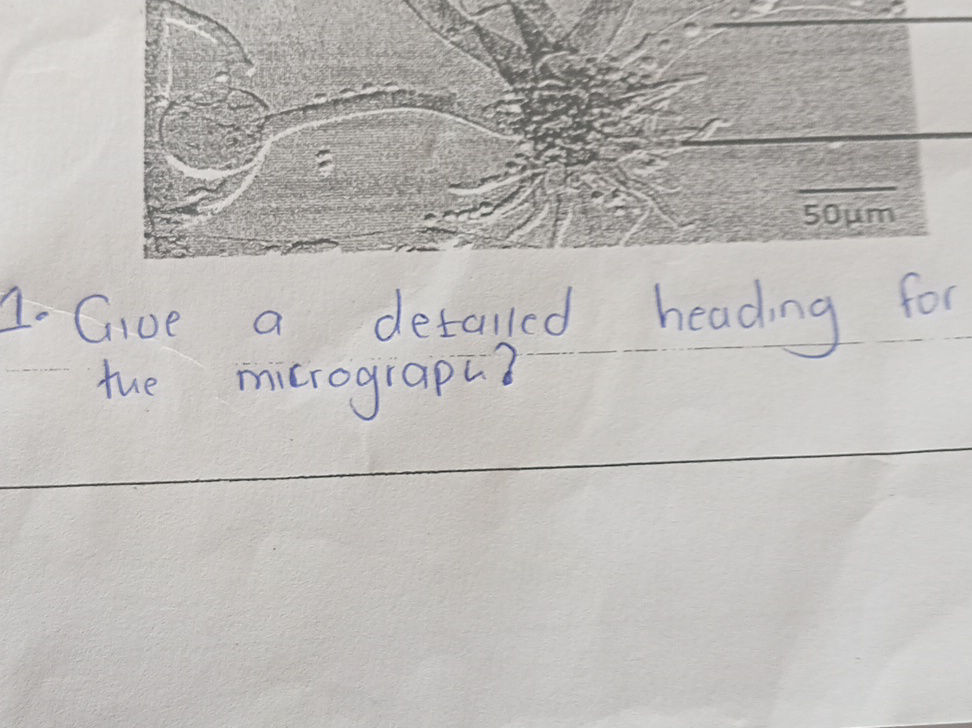 50µm
1. Give a detailed heading for
the micrograph?